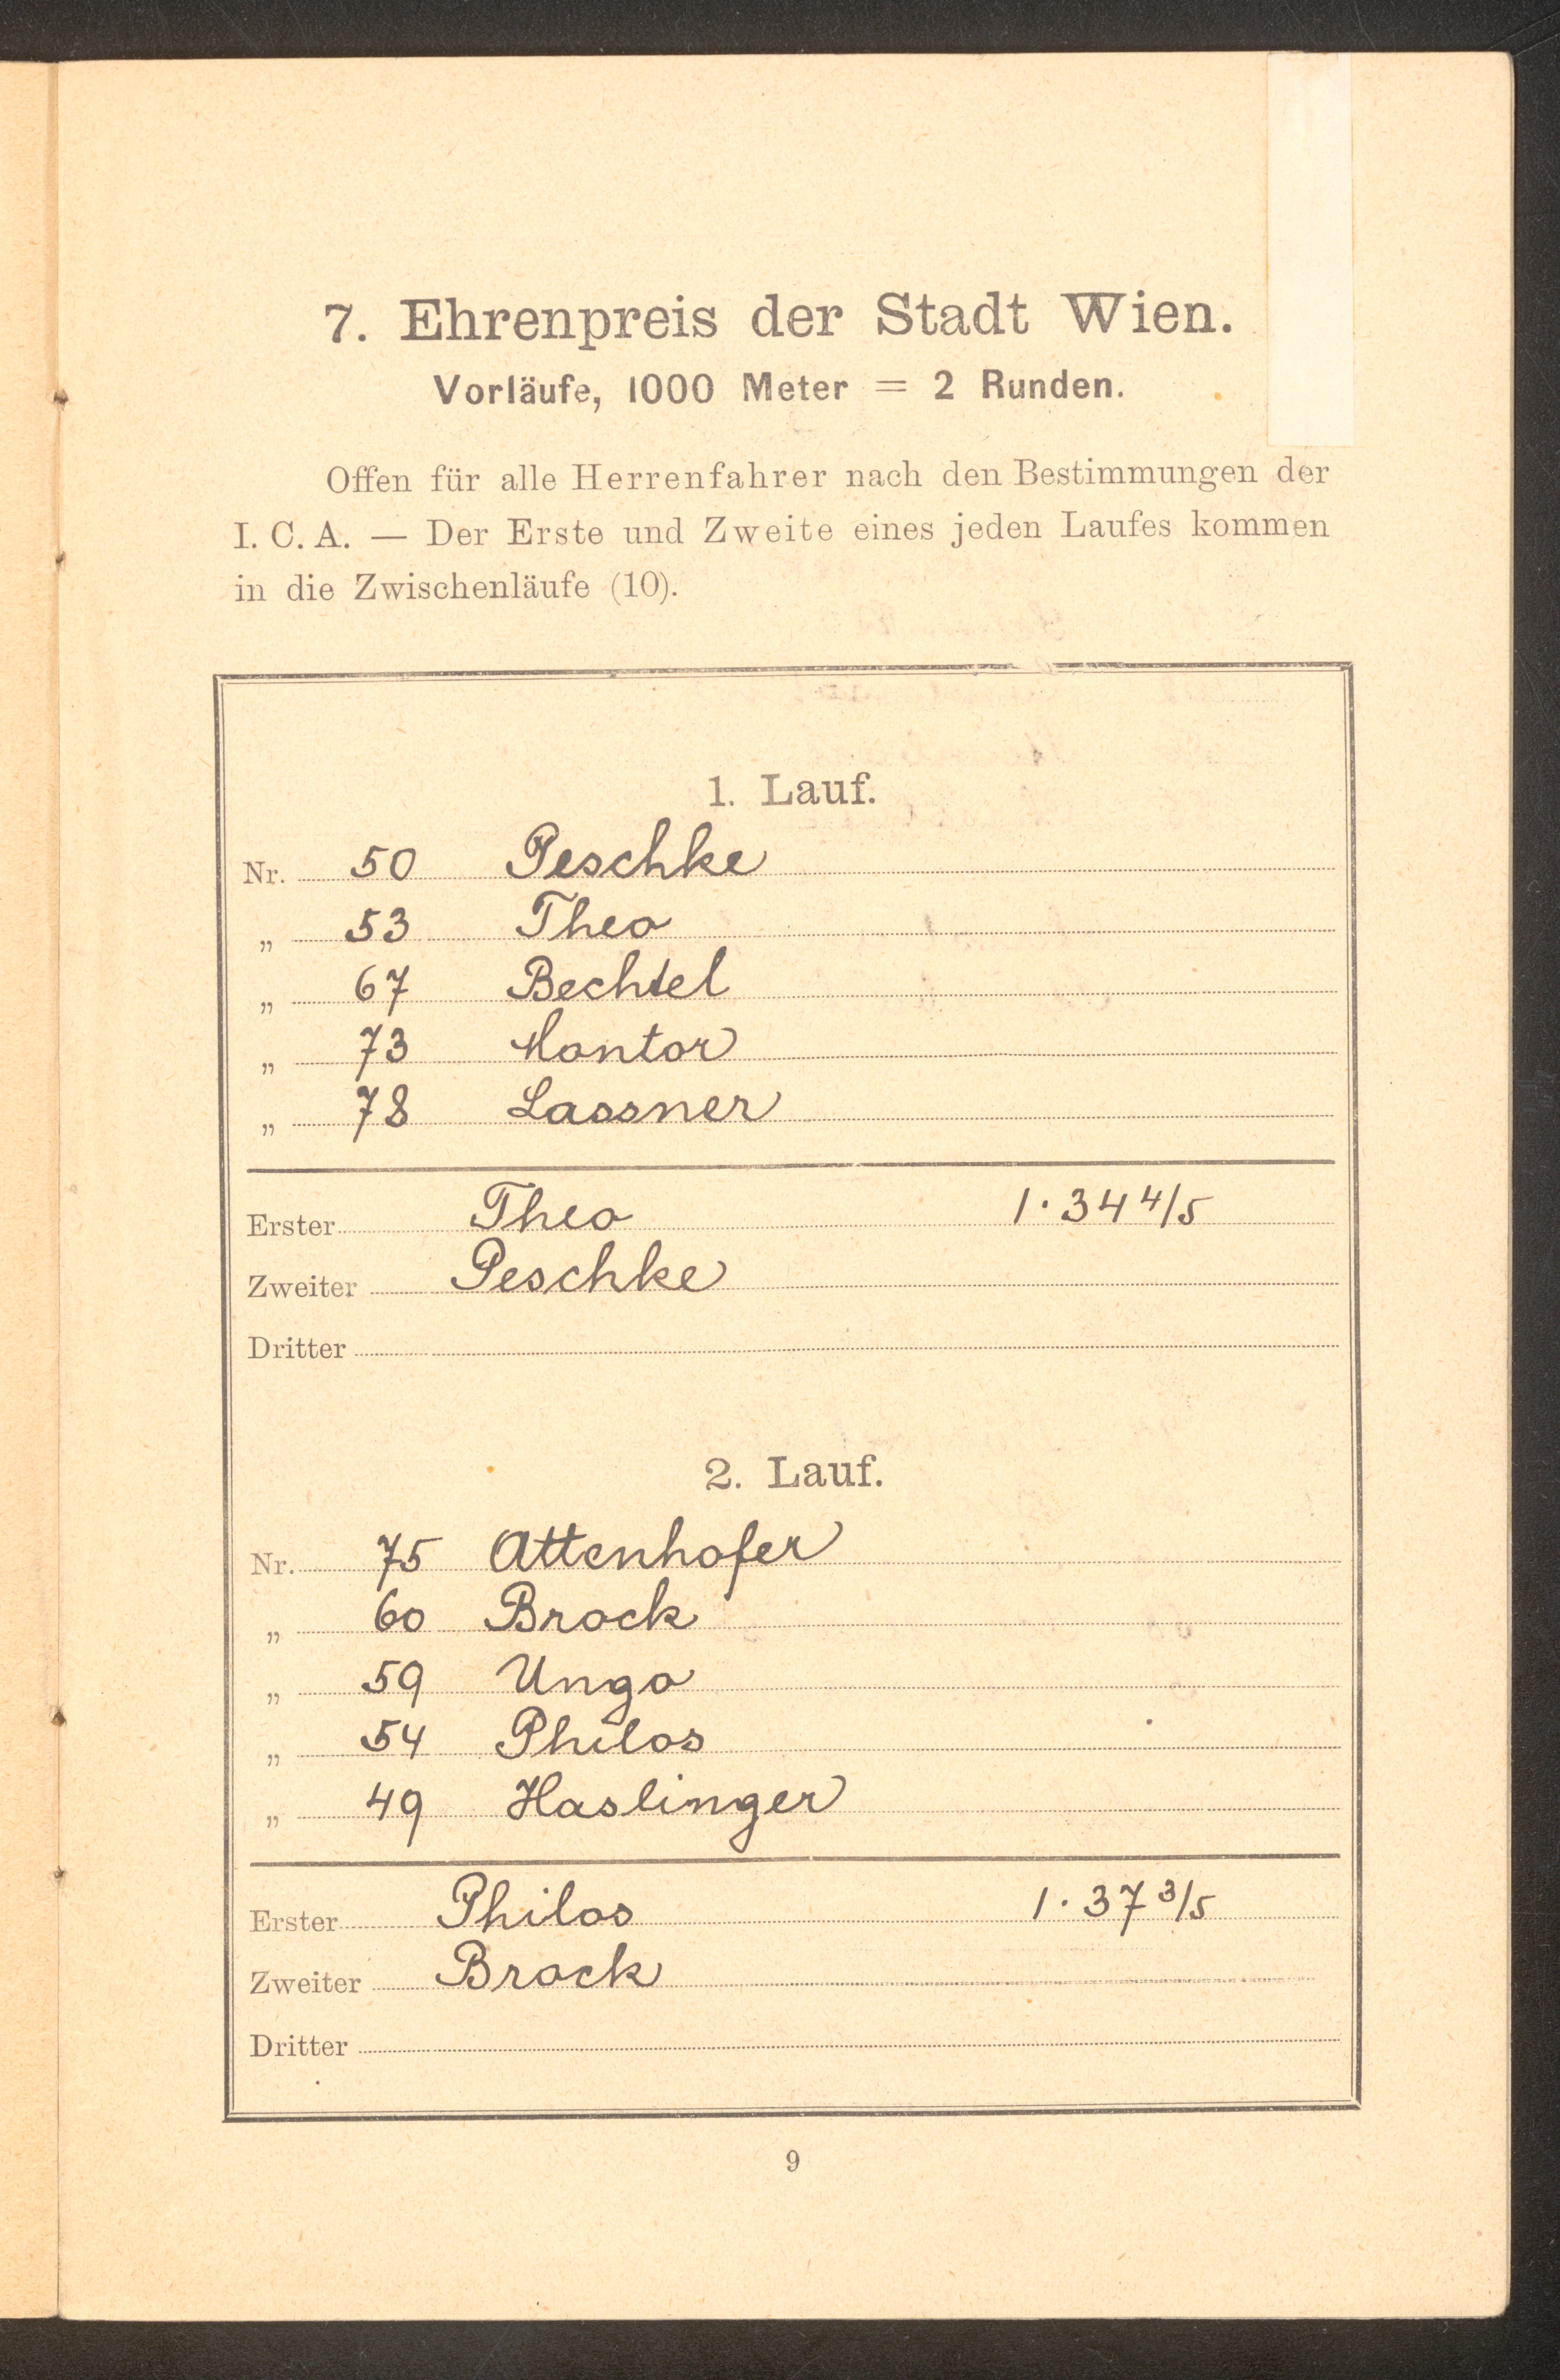 7. Ehrenpreis der Stadt Wien.
Vorläufe, 1000 Meter = 2 Runden.
Offen für alle Herrenfahrer nach den Bestimmungen der
I. C. A. — Der Erste und Zweite eines jeden Laufes kommen
in die Zwischenläufe (10).
1. Lauf.
Nr. 50 Peschke
„ 53 Theo
„ 67 Bechtel
„ 73 Mantor
„ 78 Lassner
Erster Theo 1·34 4/5
Zweiter Peschke
Dritter
2. Lauf.
Nr. 75 Attenhofer
„ 60 Brock
„ 59 Ungo
„ 54 Philos
„ 49 Haslinger
Erster Philos 1·37 3/5
Zweiter Brock
Dritter
9